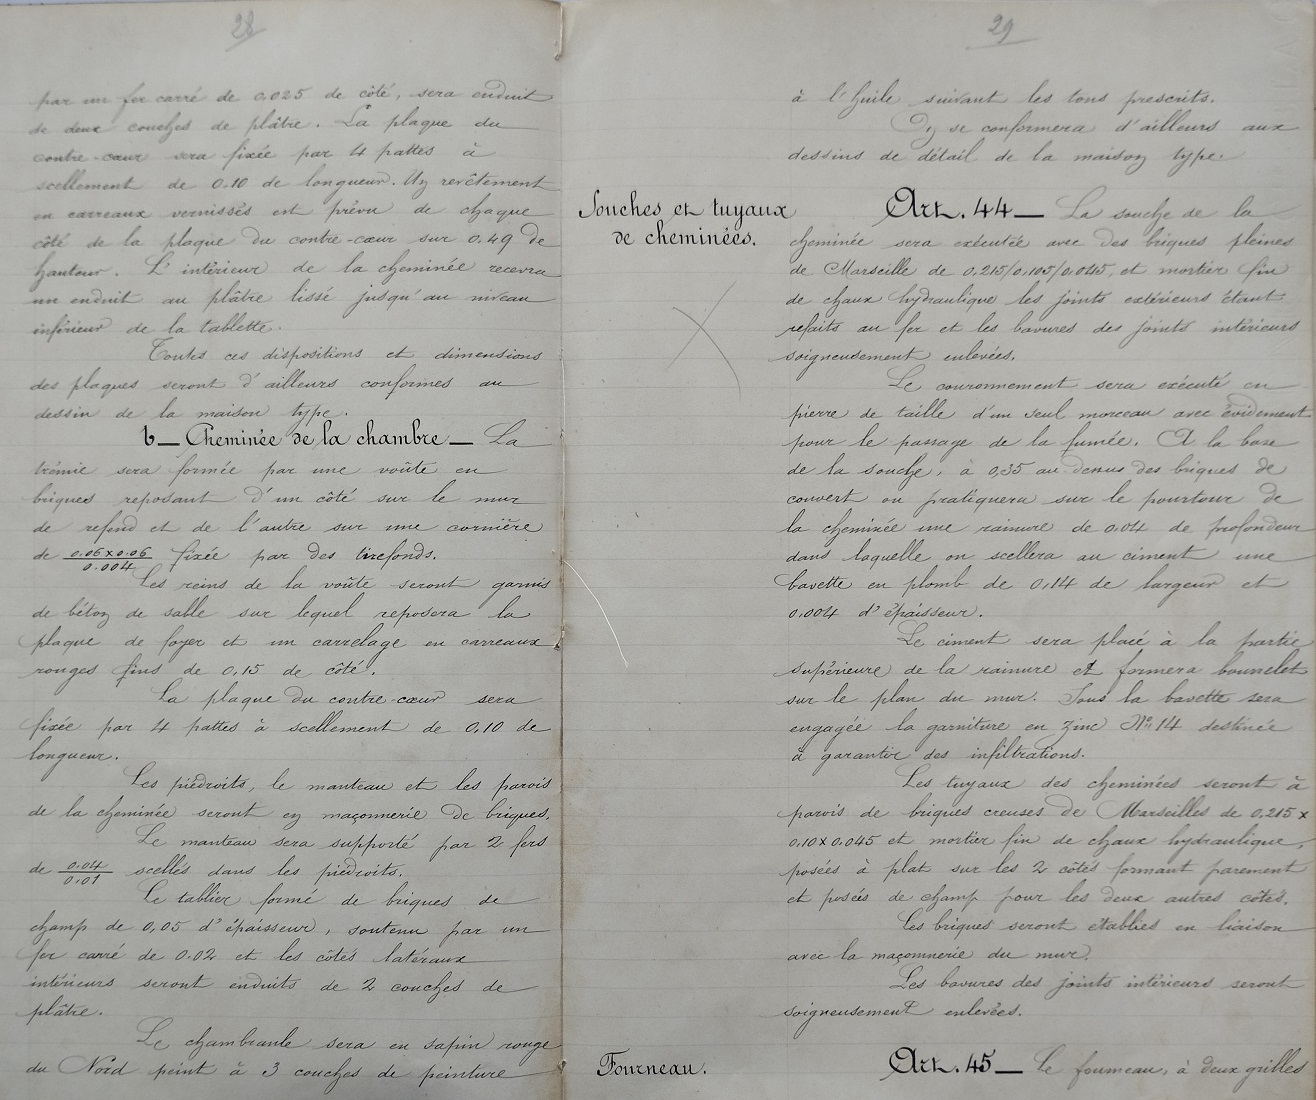 28
par un fer carré de 0,025 de côté, sera enduit
de deux couches de plâtre. La plaque du
contre-cœur sera fixée par 4 pattes à
scellement de 0,10 de longueur. Un revêtement
en carreaux vernissés est prévu de chaque
côté de la plaque du contre-cœur sur 0,49 de
hauteur. L'intérieur de la cheminée recevra
un enduit au plâtre lissé jusqu'au niveau
inférieur de la tablette.
Toutes ces dispositions et dimensions
des plaques seront d'ailleurs conformes au
dessin de la maison type.
b_ Cheminée de la chambre_ La
trémie sera formée par une voûte en
briques reposant d'un côté sur le mur
de refend et de l'autre sur une cornière
de 0.06x0.06/0.004 fixée par des tirefonds.
Les reins de la voûte seront garnis
de béton de sable sur lequel reposera la
plaque de foyer et un carrelage en carreaux
rouges fins de 0,15 de côté.
La plaque du contre-cœur sera
fixée par 4 pattes à scellement de 0,10 de
longueur.
Les piédroits, le manteau et les parois
de la cheminée seront en maçonnerie de briques.
Le manteau sera supporté par 2 fers
de 0.04/0.01 scellés dans les piédroits.
Le tablier formé de briques de
champ de 0,05 d'épaisseur, soutenu par un
fer carré de 0.02 et les côtés latéraux
intérieurs seront enduits de 2 couches de
plâtre.
Le chambranle sera en sapin rouge
du Nord peint à 3 couches de peinture
29
à l'huile suivant les tons prescrits.
On se conformera d'ailleurs aux
dessins de détail de la maison type.
Souches et tuyaux
de cheminées.
Art. 44_ La souche de la
cheminée sera exécutée avec des briques pleines
de Marseille de 0,215/0,105/0,045, et mortier fin
de chaux hydraulique les joints extérieurs étant
refaits au fer et les bavures des joints intérieurs
soigneusement enlevées.
Le couronnement sera exécuté en
pierre de taille d'un seul morceau avec évidement
pour le passage de la fumée. A la base
de la souche, à 0,35 au-dessus des briques de
couvert on pratiquera sur le pourtour de
la cheminée une rainure de 0.04 de profondeur
dans laquelle on scellera au ciment une
bavette en plomb de 0,14 de largeur et
0.004 d'épaisseur.
Le ciment sera placé à la partie
supérieure de la rainure et formera bourrelet
sur le plan du mur. Sous la bavette sera
engagée la garniture en zinc No 14 destinée
à garantir des infiltrations.
Les tuyaux des cheminées seront à
parois de briques creuses de Marseilles de 0,215 x
0,10 x 0.045 et mortier fin de chaux hydraulique,
posées à plat sur les 2 côtés formant parement
et posées de champ pour les deux autres côtés.
Les briques seront établies en liaison
avec la maçonnerie du mur.
Les bavures des joints intérieurs seront
soigneusement enlevées.
Fourneau.
Art. 45_ Le fourneau, à deux grilles